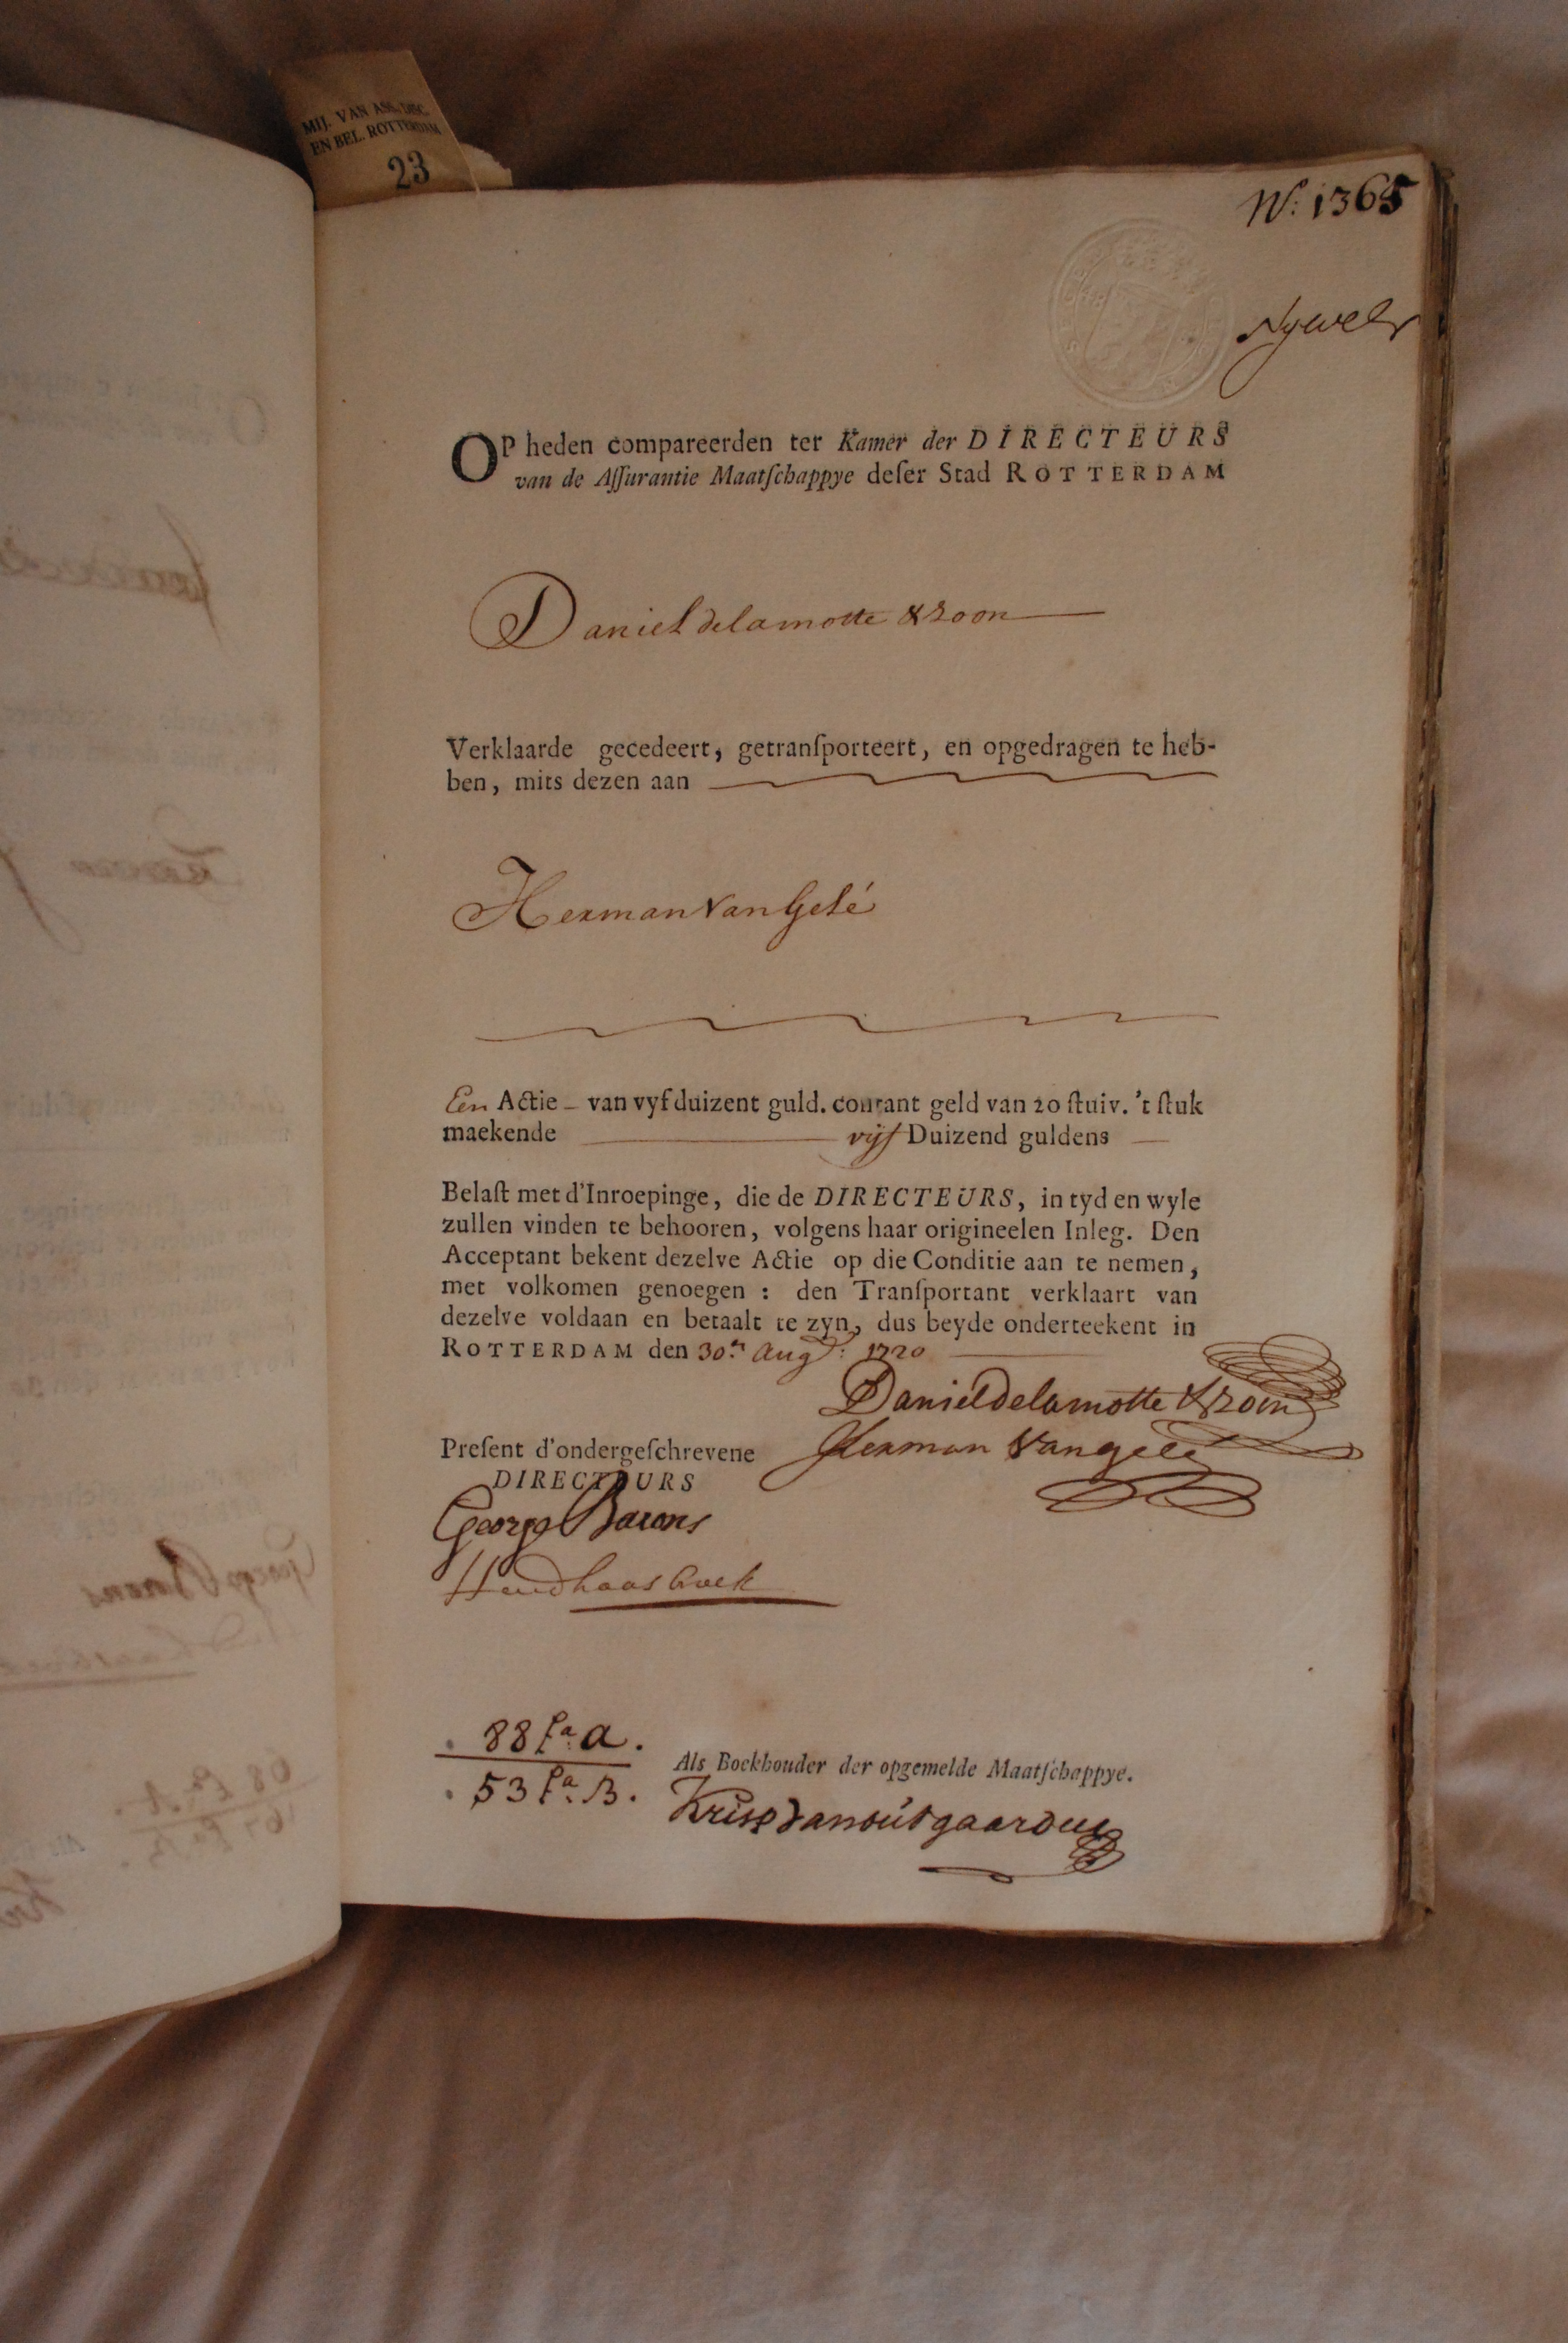 MIJ. VAN ASS., DISC.
EN BEL. ROTTERDAM
23
No. 1365
Op heden compareerden ter Kamer der DIRECTEURS
van de Aſſurantie Maatſchappye deſer Stad ROTTERDAM
Daniel de lamotte & zoon
Verklaarde gecedeert, getranſporteert, en opgedragen te heb-
ben, mits dezen aan
Herman Van Gelé
Een Actie - van vyf duizent guld. courant geld van 20 ſtuiv. 't ſtuk
maekende vijf Duizend guldens
Belaſt met d'Inroepinge, die de DIRECTEURS, in tyd en wyle
zullen vinden te behooren, volgens haar origineelen Inleg. Den
Acceptant bekent dezelve Actie op die Conditie aan te nemen,
met volkomen genoegen : den Tranſportant verklaart van
dezelve voldaan en betaalt te zyn, dus beyde onderteekent in
ROTTERDAM den 30en Augt: 1720
Daniel de lamotte & zoon
Preſent d'ondergeſchrevene Herman Van gele
DIRECTEURS
George Barons
88 fa. A.
53 fa. B.
Als Boekhouder der opgemelde Maatſchappye.